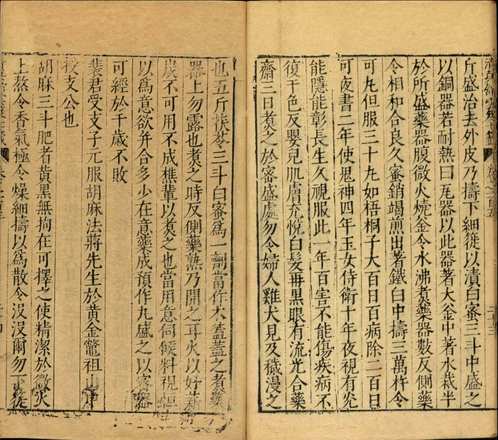 斤盛治去外皮乃擣下細徙以漬白蜜三斗中盛之
以銅器若耐熱曰瓦器以此器著大釜中著水裁半
於所盛藥器腹微火燒釜令水沸煑藥器數反側藥
令相和合良久蜜銷竭煎出著鐵臼中擣三萬杵令
可丸但服三十丸如梧桐子大百日百病除二百日
可夜書二年使鬼神四年玉女侍衛十年夜視有光
能隱能彰長生久視服此一年百害不能傷疾病不
復干色反嬰兒肌膚充悅白髮再黑眼有流光合藥
齋三日煑之於蜜盛處勿令婦人雞犬見及穢漫之
也五斤茯苓三斗白蜜為一劑當作木蓋蓋之煑藥
器上勿露也煑之時反側藥熟乃開之耳火以好
炭不可用不成樵輩以煑之也當用意伺候料視
以為意欲并合多少在意藥成預作九盛之以
可經於千歲不敗
裴君受支子元服胡麻法蔣先生於黃金籠祖山中
授支公也
胡麻三斗肥者黃黑無拘在可擇之使精潔於微火
上熬令香氣極令燥細擣以為散令没没爾勿下從